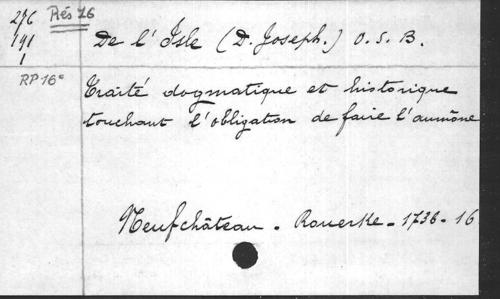 276 Rés 16
191
1
De l'Isle (D. Joseph.) O.S.B.
RP 16°
Traité dogmatique et historique
touchant l'obligation de faire l'aumône
Neufchâteau - Rouerke - 1736 - 16